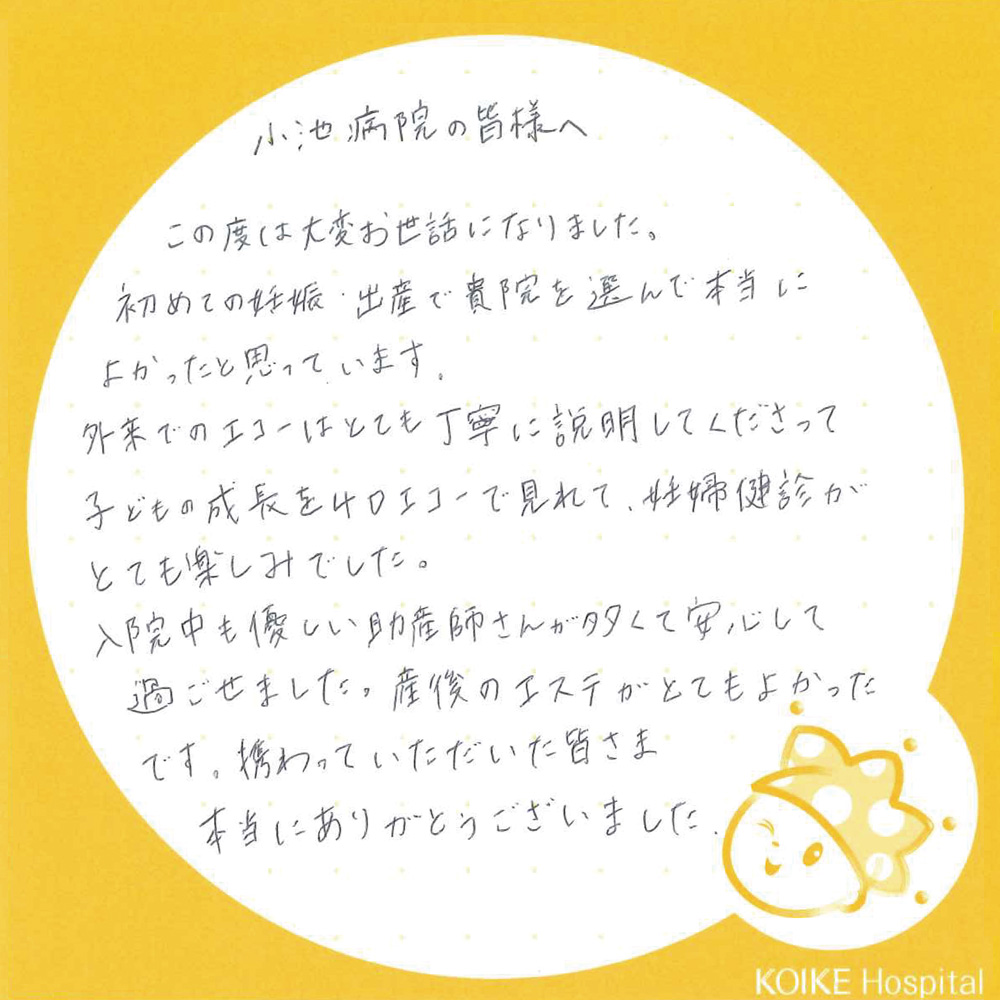 小池病院の皆様へ
この度は大変お世話になりました。
初めての妊娠・出産で貴院を選んで本当に
よかったと思っています。
外来でのエコーはとても丁寧に説明してくださって
子どもの成長を4Dエコーで見れて、妊婦健診が
とても楽しみでした。
入院中も優しい助産師さんが多くて安心して
過ごせました。産後のエステがとてもよかった
です。携わっていただいた皆さま
本当にありがとうございました。
KOIKE Hospital